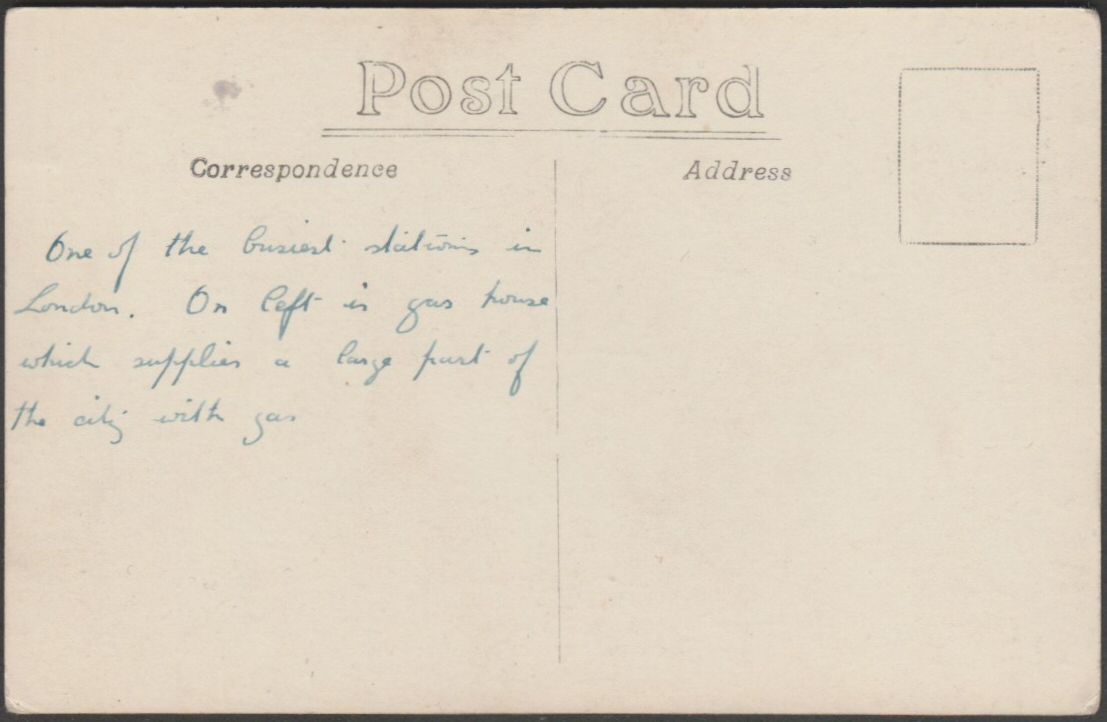 Post Card
Correspondence
Address
One of the busiest stations in
London. On left is gas house
which supplies a large part of
the city with gas